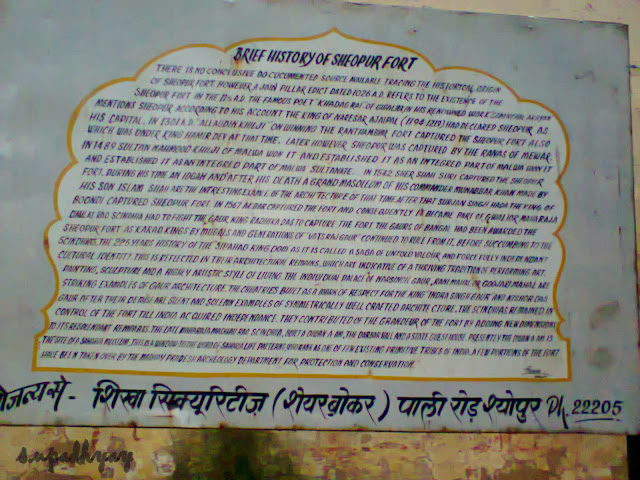 BRIEF HISTORY OF SHEOPUR FORT
THERE IS NO CONCLUSIVE DO CUCUMENTED SOURCE AVAILABLE TRACING THE HISTORICAL ORIGIN
OF SHEOPUR FORT. HOWEVER A JAIN PILLAR EDICT DATED 1026 A.D. REFERS TO THE EXISTENCE OF THE
SHEOPUR FORT IN THE 11th A.D. THE FAMOUS POET "KHADAG RAI" OF GWALIOR IN HIS RENOWNED WORK
MENTIONS SHEOPUR ACCORDING TO HIS ACCOUNT THE KING OF NARESAR AJAIPAL (1194-1219) HAD DECLARED SHEOPUR AS
HIS CAPITAL. IN 1301 A.D. "ALLAUDIN KHILJI" ON WINNING THE RANTHAMBHOR FORT CAPTURED THE SHEOPUR FORT ALSO
WHICH WAS UNDER KING HAMIR DEV AT THAT TIME. LATER HOWEVER SHEOPUR WAS CAPTURED BY THE RANAS OF MEWAR.
IN 1489 SULTAN MAHMOOD KHILJI OF MALWA WON IT AND ESTABLISHED IT AS AN INTEGRED PART OF MALWA WON IT
AND ESTABLISHED IT AS AN INTEGRED PART OF MALWA SULTANATE. IN 1542 SHER SHAH SURI CAPTURED THE SHEOPUR
FORT. DURING HIS TIME AN IDGAH AND AFTER HIS DEATH A GRAND MASOLLEUM OF HIS COMMANDER MUNABBAR KHAN MADE BY
HIS SON ISLAM SHAH ARE THE INTRESTING EXAMLE OF THE ARCHITECTURE OF THAT TIME AFTER THAT SURJAN SINGH HADA THE KING OF
BOONDI CAPTURED SHEOPUR FORT. IN 1567 AKBAR CAPTURED THE FORT AND CONSEQUENTLY IT BECAME PART OF GWALIOR MAHARAJA
DAULAT RAO SCINDHIA HAD TO FIGHT THE GAUR KING RADHIKA DAS TO CAPTURE THE FORT. THE GAURS OF BANGAL HAD BEEN AWARDED THE
SHEOPUR FORT AS KARAD KINGS BY MUGALS AND GENERATIONS OF "VATSRAJ GAUR" CONTINUED TO RULE FROM IT, BEFORE SUCCUMBING TO THE
SCINDHIAS. THE 225 YEARS HISTORY OF THE "SIPAHAD KING DOM AS IT IS CALLED A SAGA OF UNTOLD VALOUR AND FORCE FULLY INDEPENDANT
CULTURAL IDENTITY. THIS IS REFLECTED IN THEIR ARCHITECTURAL REMAINS, WHICH ARE INDICATIVE OF A THRIVING TRADITION OF PERFORMING ART.
PAINTING, SCULPTURE AND A HIGHLY ARTISTIC STYLE OF LIVING. THE INDIVIDUAL PALACE OF NARSINGH GAUR, RANI MAHAL OR GOOJARI MAHAL ARE
STRIKING EXAMPLES OF GAUR ARCHITECTURE. THE CHHATRIES BUILT AS A MARK OF RESPECT FOR THE KING INDRA SINGH GAUR AND KISHOR DAS
GAUR AFTER THEIR DEMISE ARE SILENT AND SOLEMN EXAMPLES OF SYMMETRICALLY WELL CRAFTED ARCHITECTURE. THE SCINDHIAS REMAINED IN
CONTROL OF THE FORT TILL INDIA ACQUIRED INDEPENDANCE. THEY CONTRIBUTED OF THE GRANDEUR OF THE FORT BY ADDING NEW DIMENSIONS
TO ITS RESPLENDANT REMINDERS. THE LATE MAHARAJA MADHAV RAO SCINDHIA, BUILT A DIWAN A AM, THE DARBAR HALL AND A STATE GUEST HOUSE. PRESENTLY THE DIWAN A AM IS
THE SITE OF A SAHARIA MUSEUM, THIS IS A WINDOW TO THE WORLD OF SAHARIA LIFE PATTERNS, WHO RANK AS ONE OF FEW EXISTING PRIMITIVE TRIBES OF INDIA. A FEW PORTIONS OF THE FORT
HAVE BEEN TAKEN OVER BY THE MADHYA PRADESH ARCHEOLOGY DEPARTMENT FOR PROTECTION AND CONSERVATION.
सौजन्य से - शिखा सिक्यूरिटीज़ (शेयर ब्रोकर) पाली रोड़ श्योपुर Ph. 22205
s.upadhyay